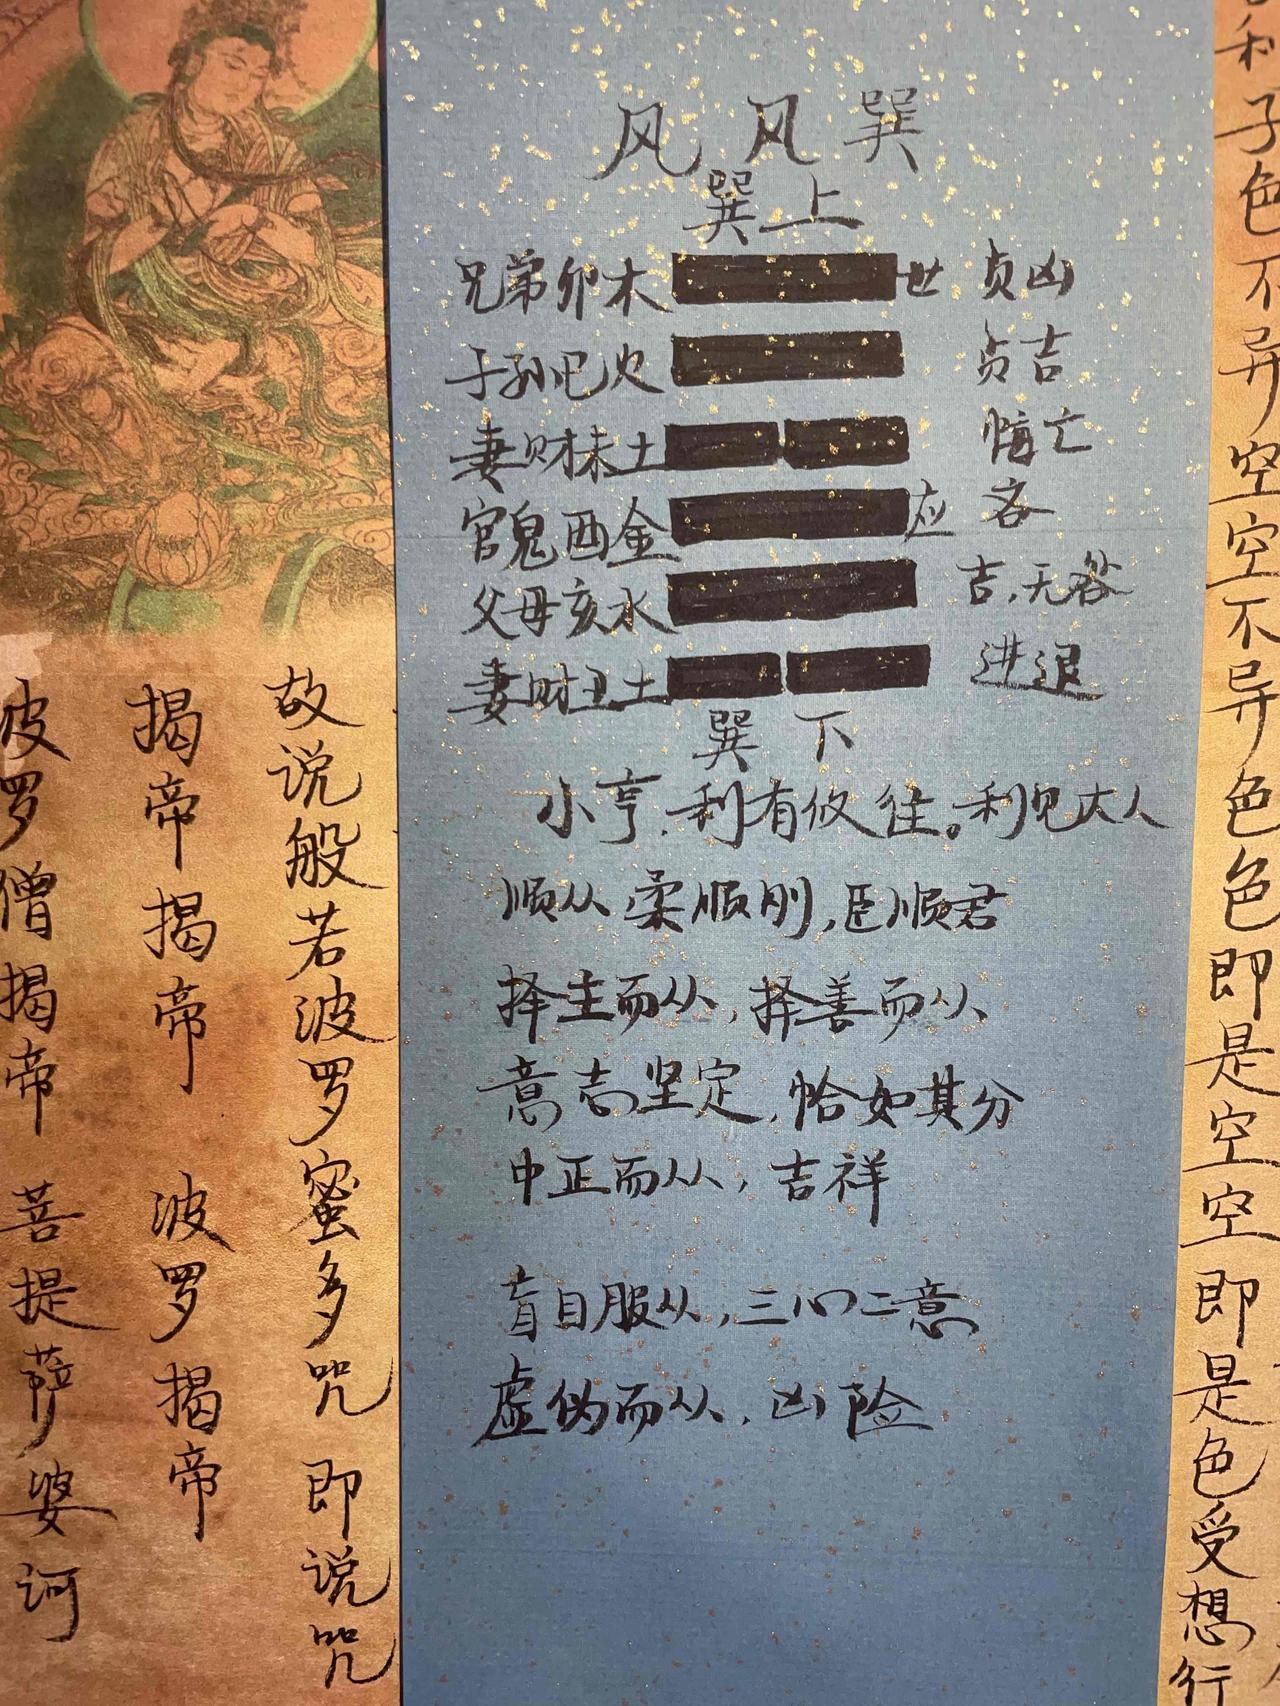 风风巽
巽上
兄弟卯木 世 贞凶
子孙巳火 贞吉
妻财未土 悔亡
官鬼酉金 应 吝
父母亥水 吉,无咎
妻财丑土 进退
巽下
小亨,利有攸往。利见大人
顺从 柔顺刚,臣顺君
择主而从,择善而从
意志坚定,恰如其分
中正而从,吉祥
盲目服从,三心二意
虚伪而从,凶险
利子色不异空空不异色色即是空空即是色受想行
故说般若波罗蜜多咒 即说咒
揭帝揭帝 波罗揭帝
波罗僧揭帝 菩提萨婆诃